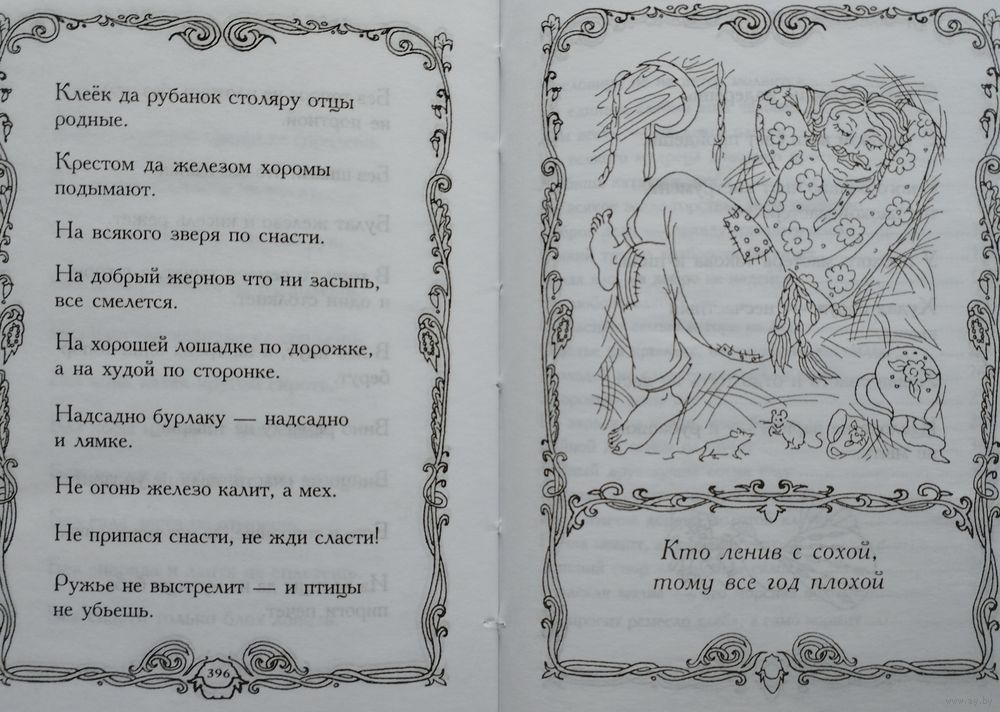 Клеёк да рубанок столяру отцы
родные.
Крестом да железом хоромы
подымают.
На всякого зверя по снасти.
На добрый жернов что ни засыпь,
все смелется.
На хорошей лошадке по дорожке,
а на худой по сторонке.
Надсадно бурлаку — надсадно
и лямке.
Не огонь железо калит, а мех.
Не припася снасти, не жди сласти!
Ружье не выстрелит — и птицы
не убьешь.
396
Кто ленив с сохой,
тому все год плохой
www.ay.by